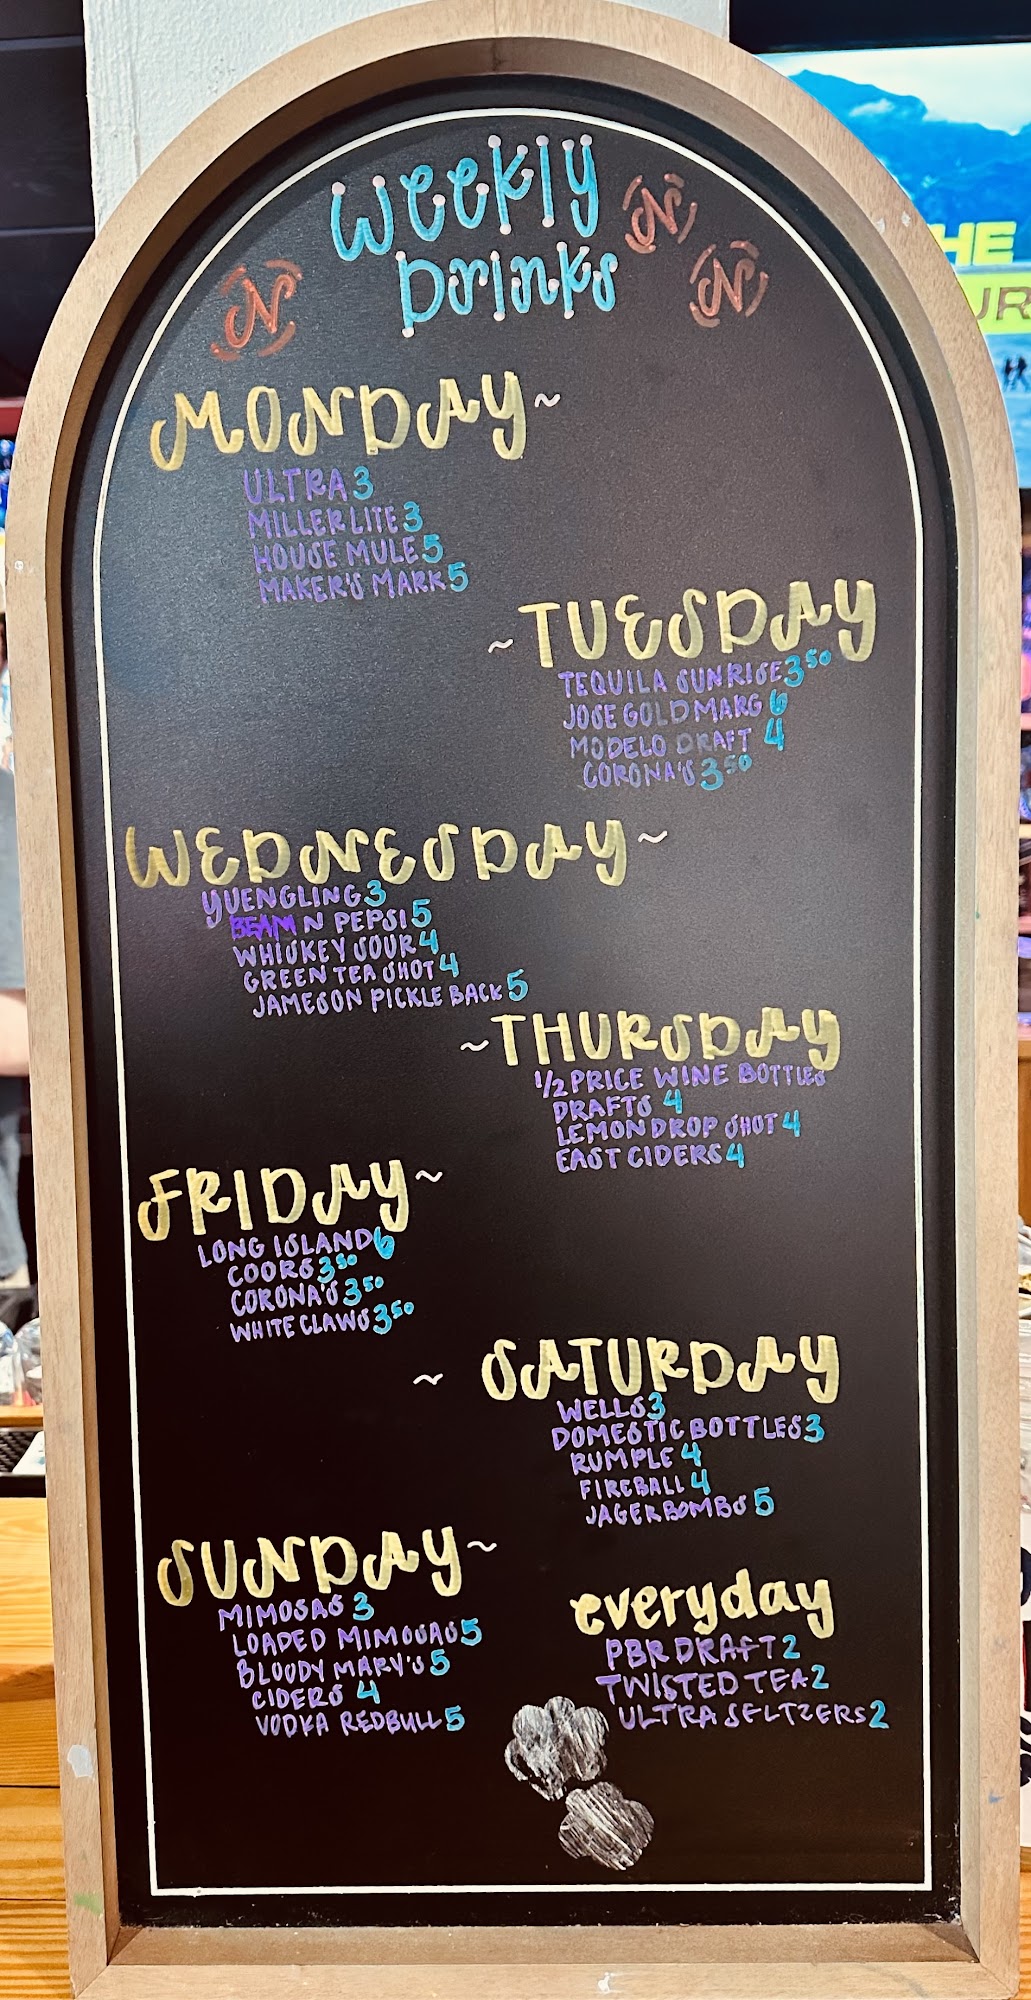 Weekly
Drinks
N
N
N
MONDAY~
ULTRA 3
MILLER LITE 3
HOUSE MULE 5
MAKER'S MARK 5
~TUESDAY
TEQUILA SUNRISE 3 50
JOSE GOLD MARG 6
MODELO DRAFT 4
CORONA'S 3 50
WEDNESDAY~
YUENGLING 3
BEAM N PEPSI 5
WHISKEY SOUR 4
GREEN TEA SHOT 4
JAMESON PICKLE BACK 5
~THURSDAY
1/2 PRICE WINE BOTTLES
DRAFTS 4
LEMON DROP SHOT 4
EAST CIDERS 4
FRIDAY~
LONG ISLAND 6
COORS 3 50
CORONA'S 3 50
WHITE CLAWS 3 50
~ SATURDAY
WELLS 3
DOMESTIC BOTTLES 3
RUMPLE 4
FIREBALL 4
JAGERBOMBS 5
SUNDAY~
MIMOSAS 3
LOADED MIMOSAS 5
BLOODY MARY'S 5
CIDERS 4
VODKA REDBULL 5
everyday
PBR DRAFT 2
TWISTED TEA 2
ULTRA SELTZERS 2
HE
UR